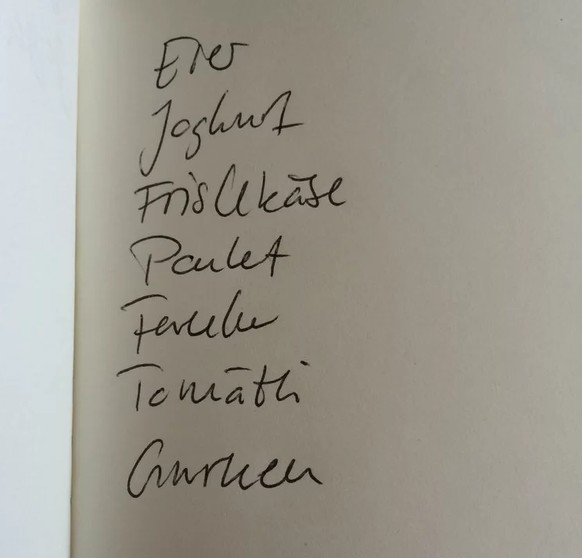 Eier
Joghurt
Frischkäse
Poulet
Fenchel
Tomätli
Gurken